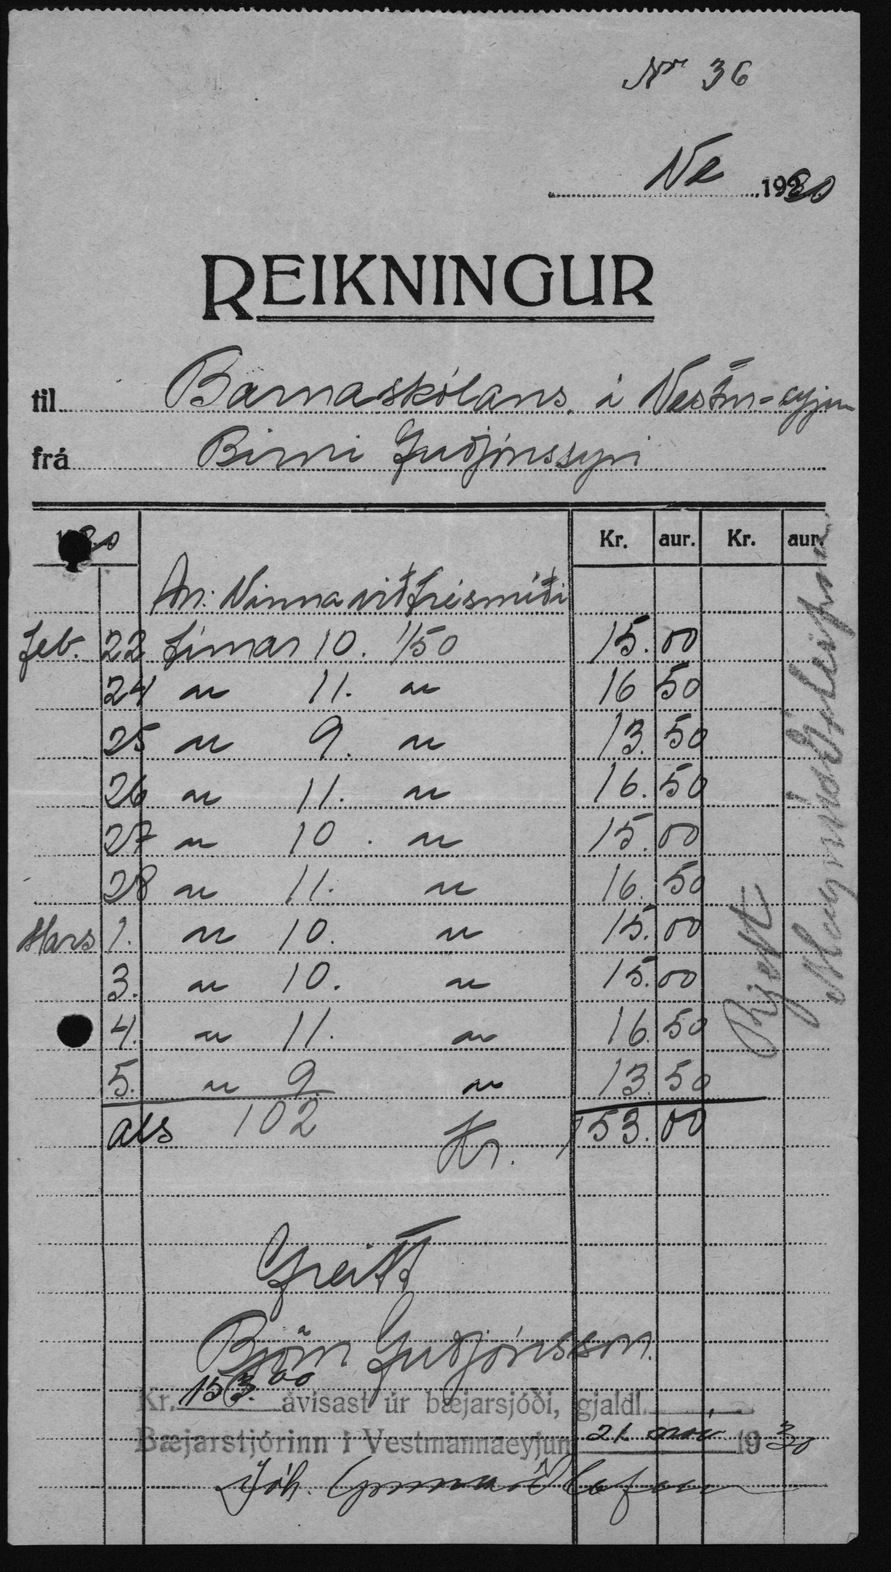 Nr 36
Ve 1930
REIKNINGUR
til Barnaskólans. í Vestm-eyjum
frá Birni Guðjónssyni
1930 Kr. aur. Kr. aur.
An: Vinna við trésmíði
feb. 22 tímar 10. 1/50 15.00
24 " 11. " 16 50
25 " 9. " 13.50
26 " 11. " 16.50
27 " 10. " 15.00
28 " 11. " 16.50
Mars 1. " 10. " 15.00
3. " 10. " 15.00
4. " 11. " 16.50
5. " 9 " 13.50
als 102 Kr. 153.00
Rjett
Greitt
Björn Guðjónsson.
Kr. 153.00 ávísast úr bæjarsjóði, gjaldl.
Bæjarstjórinn í Vestmannaeyjum 21. maí 1930
Jóh. Gunnar Ólafsson